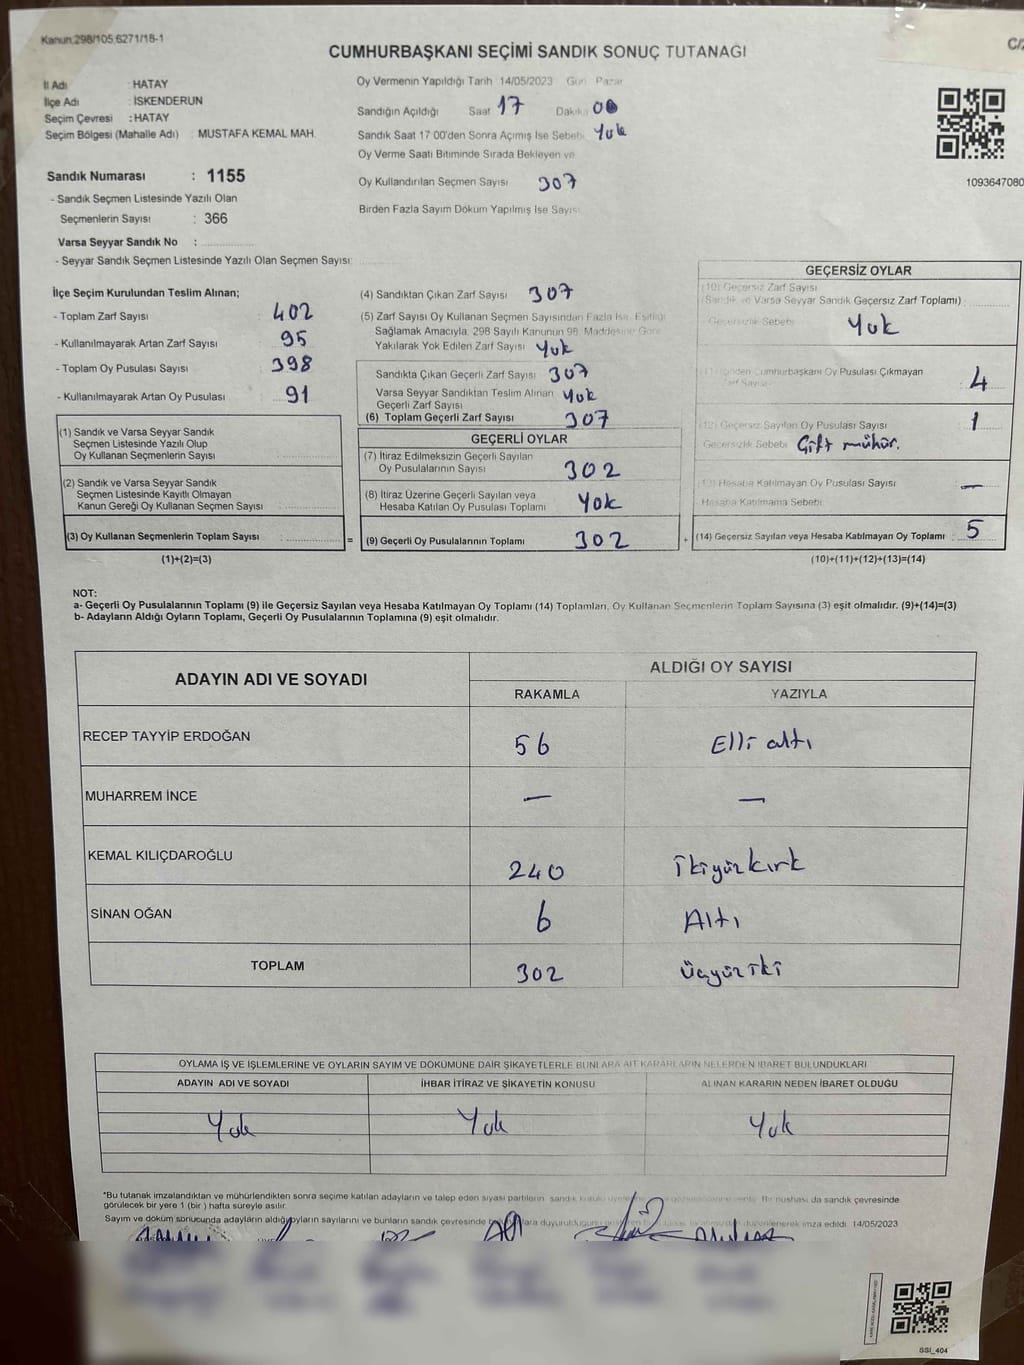 Kanun:298/105,6271/18-1
CUMHURBAŞKANI SEÇİMİ SANDIK SONUÇ TUTANAĞI
C/2
İl Adı : HATAY
İlçe Adı : İSKENDERUN
Seçim Çevresi : HATAY
Seçim Bölgesi (Mahalle Adı) : MUSTAFA KEMAL MAH.
Sandık Numarası : 1155
- Sandık Seçmen Listesinde Yazılı Olan
Seçmenlerin Sayısı : 366
Varsa Seyyar Sandık No :
- Seyyar Sandık Seçmen Listesinde Yazılı Olan Seçmen Sayısı:
Oy Vermenin Yapıldığı Tarih 14/05/2023 Gün Pazar
Sandığın Açıldığı Saat 17 Dakika 00
Sandık Saat 17:00'den Sonra Açımış İse Sebebi Yok
Oy Verme Saati Bitiminde Sırada Bekleyen ve
Oy Kullandırılan Seçmen Sayısı 307
Birden Fazla Sayım Döküm Yapılmış İse Sayısı
1093647080
İlçe Seçim Kurulundan Teslim Alınan;
- Toplam Zarf Sayısı 402
- Kullanılmayarak Artan Zarf Sayısı 95
- Toplam Oy Pusulası Sayısı 398
- Kullanılmayarak Artan Oy Pusulası 91
(1) Sandık ve Varsa Seyyar Sandık
Seçmen Listesinde Yazılı Olup
Oy Kullanan Seçmenlerin Sayısı :
(2) Sandık ve Varsa Seyyar Sandık
Seçmen Listesinde Kayıtlı Olmayan
Kanun Gereği Oy Kullanan Seçmen Sayısı :
(3) Oy Kullanan Seçmenlerin Toplam Sayısı : =
(1)+(2)=(3)
(4) Sandıktan Çıkan Zarf Sayısı 307
(5) Zarf Sayısı Oy Kullanan Seçmen Sayısından Fazla İse, Eşitliği
Sağlamak Amacıyla, 298 Sayılı Kanunun 98. Maddesine Göre
Yakılarak Yok Edilen Zarf Sayısı Yok
Sandıkta Çıkan Geçerli Zarf Sayısı 307
Varsa Seyyar Sandıktan Teslim Alınan Yok
Geçerli Zarf Sayısı
(6) Toplam Geçerli Zarf Sayısı 307
GEÇERLİ OYLAR
(7) İtiraz Edilmeksizin Geçerli Sayılan
Oy Pusulalarının Sayısı 302
(8) İtiraz Üzerine Geçerli Sayılan veya
Hesaba Katılan Oy Pusulası Toplamı Yok
(9) Geçerli Oy Pusulalarının Toplamı 302 +
GEÇERSİZ OYLAR
(10) Geçersiz Zarf Sayısı
(Sandık ve Varsa Seyyar Sandık Geçersiz Zarf Toplamı)
Geçersizlik Sebebi Yok
(11) İçinden Cumhurbaşkanı Oy Pusulası Çıkmayan
Zarf Sayısı 4
(12) Geçersiz Sayılan Oy Pusulası Sayısı 1
Geçersizlik Sebebi Çift mühür.
(13) Hesaba Katılmayan Oy Pusulası Sayısı —
Hesaba Katılmama Sebebi
(14) Geçersiz Sayılan veya Hesaba Katılmayan Oy Toplamı : 5
(10)+(11)+(12)+(13)=(14)
NOT:
a- Geçerli Oy Pusulalarının Toplamı (9) ile Geçersiz Sayılan veya Hesaba Katılmayan Oy Toplamı (14) Toplamları, Oy Kullanan Seçmenlerin Toplam Sayısına (3) eşit olmalıdır. (9)+(14)=(3)
b- Adayların Aldığı Oyların Toplamı, Geçerli Oy Pusulalarının Toplamına (9) eşit olmalıdır.
ADAYIN ADI VE SOYADI
ALDIĞI OY SAYISI
RAKAMLA YAZIYLA
RECEP TAYYİP ERDOĞAN 56 Elli altı
MUHARREM İNCE — —
KEMAL KILIÇDAROĞLU 240 İkiyüzkırk
SİNAN OĞAN 6 Altı
TOPLAM 302 Üçyüziki
OYLAMA İŞ VE İŞLEMLERİNE VE OYLARIN SAYIM VE DÖKÜMÜNE DAİR ŞİKAYETLERLE BUNLARA AİT KARARLARIN NELERDEN İBARET BULUNDUKLARI
ADAYIN ADI VE SOYADI İHBAR İTİRAZ VE ŞİKAYETİN KONUSU ALINAN KARARIN NEDEN İBARET OLDUĞU
Yok Yok Yok
*Bu tutanak imzalandıktan ve mühürlendikten sonra seçime katılan adayların ve talep eden siyasi partilerin sandık kurulu Bir nushası da sandık çevresinde
görülecek bir yere 1 (bir ) hafta süreyle asılır.
Sayım ve döküm sonucunda adayların aldığı oyların sayılarını ve bunların sandık çevresinde duyurulduğunu imza edildi. 14/05/2023
SSI_404